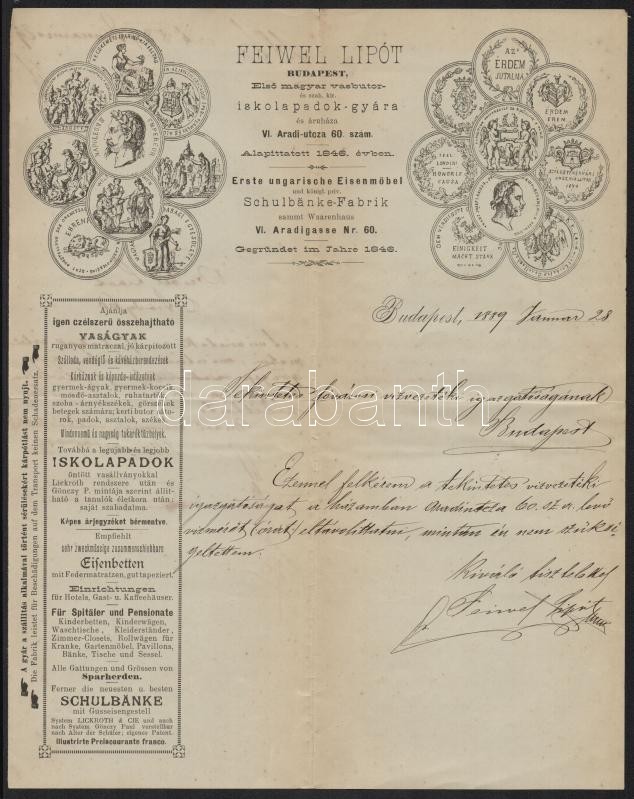 FEIWEL LIPÓT
BUDAPEST,
Első magyar vasbutor-
és szab. kir.
iskolapadok-gyára
és áruháza
VI. Aradi-utcza 60. szám.
Alapíttatott 1846. évben.
Erste ungarische Eisenmöbel
und königl. priv.
Schulbänke-Fabrik
sammt Waarenhaus
VI. Aradigasse Nr. 60.
Gegründet im Jahre 1846.
AZ
ÉRDEM
JUTALMA
ÉRDEM
EREM
1851
LONDINI
HONORIS
CAUSA
SZÉKESFEHÉRVÁRI
1879
DEM VERDIENSTE
EINIGKEIT
MACHT STARK
EHREN
Budapest, 1889 Januar 28
Tekintetes fővárosi vizvezetéki igazgatóságának
Budapest
Ezennel felkérem a tekintetes vizvezetéki
igazgatóságot a házamban Aradiutcza 60. sz a. levő
vizmérőt (órát) eltávolíttatni, mintán én nem szüksé-
geltettem.
Kiváló tisztelettel
Feiwel Lipót
Ajánlja
igen czélszerű összehajtható
VASÁGYAK
ruganyos matráczal, jó kárpitozott
Szálloda, vendéglő és kávéházberendezések
Kórházak és képezde-intézetnek
gyermek-ágyak, gyermek-kocsik
mosdó-asztalok, ruhatartók,
szoba-árnyékszékek, görszékek
betegek számára; kerti butorzatok-
rok, padok, asztalok, székek.
Mindennemű és nagyság takaréktűzhelyek.
Továbbá a legujabb és legjobb
ISKOLAPADOK
öntött vasállványokkal
Lickroth rendszere után és
Gönczy P. mintája szerint állít-
ható a tanulók életkora után,
saját szabadalma.
Képes árjegyzéket bérmentve.
Empfiehlt
sehr zweckmässige zusammenschiebbare
Eisenbetten
mit Federmatratzen, gut tapeziert.
Einrichtungen
für Hotels, Gast- u. Kaffeehäuser.
Für Spitäler und Pensionate
Kinderbetten, Kinderwägen,
Waschtische, Kleiderständer,
Zimmer-Closets, Rollwägen für
Kranke, Gartenmöbel, Pavillons,
Bänke, Tische und Sessel.
Alle Gattungen und Grössen von
Sparherden.
Ferner die neussten u. besten
SCHULBÄNKE
mit Gusseisengestell
System LICKROTH & CIE und auch
nach System Gönczy Paul verstellbar
nach Alter der Schüler; eigener Patent.
Illustrirte Preiscourante franco.
A gyár a szállítás alkalmával történt sérülésekért kárpótlást nem nyujt.
Die Fabrik leistet für Beschädigungen auf dem Transport keinen Schadenersatz.
darabanth